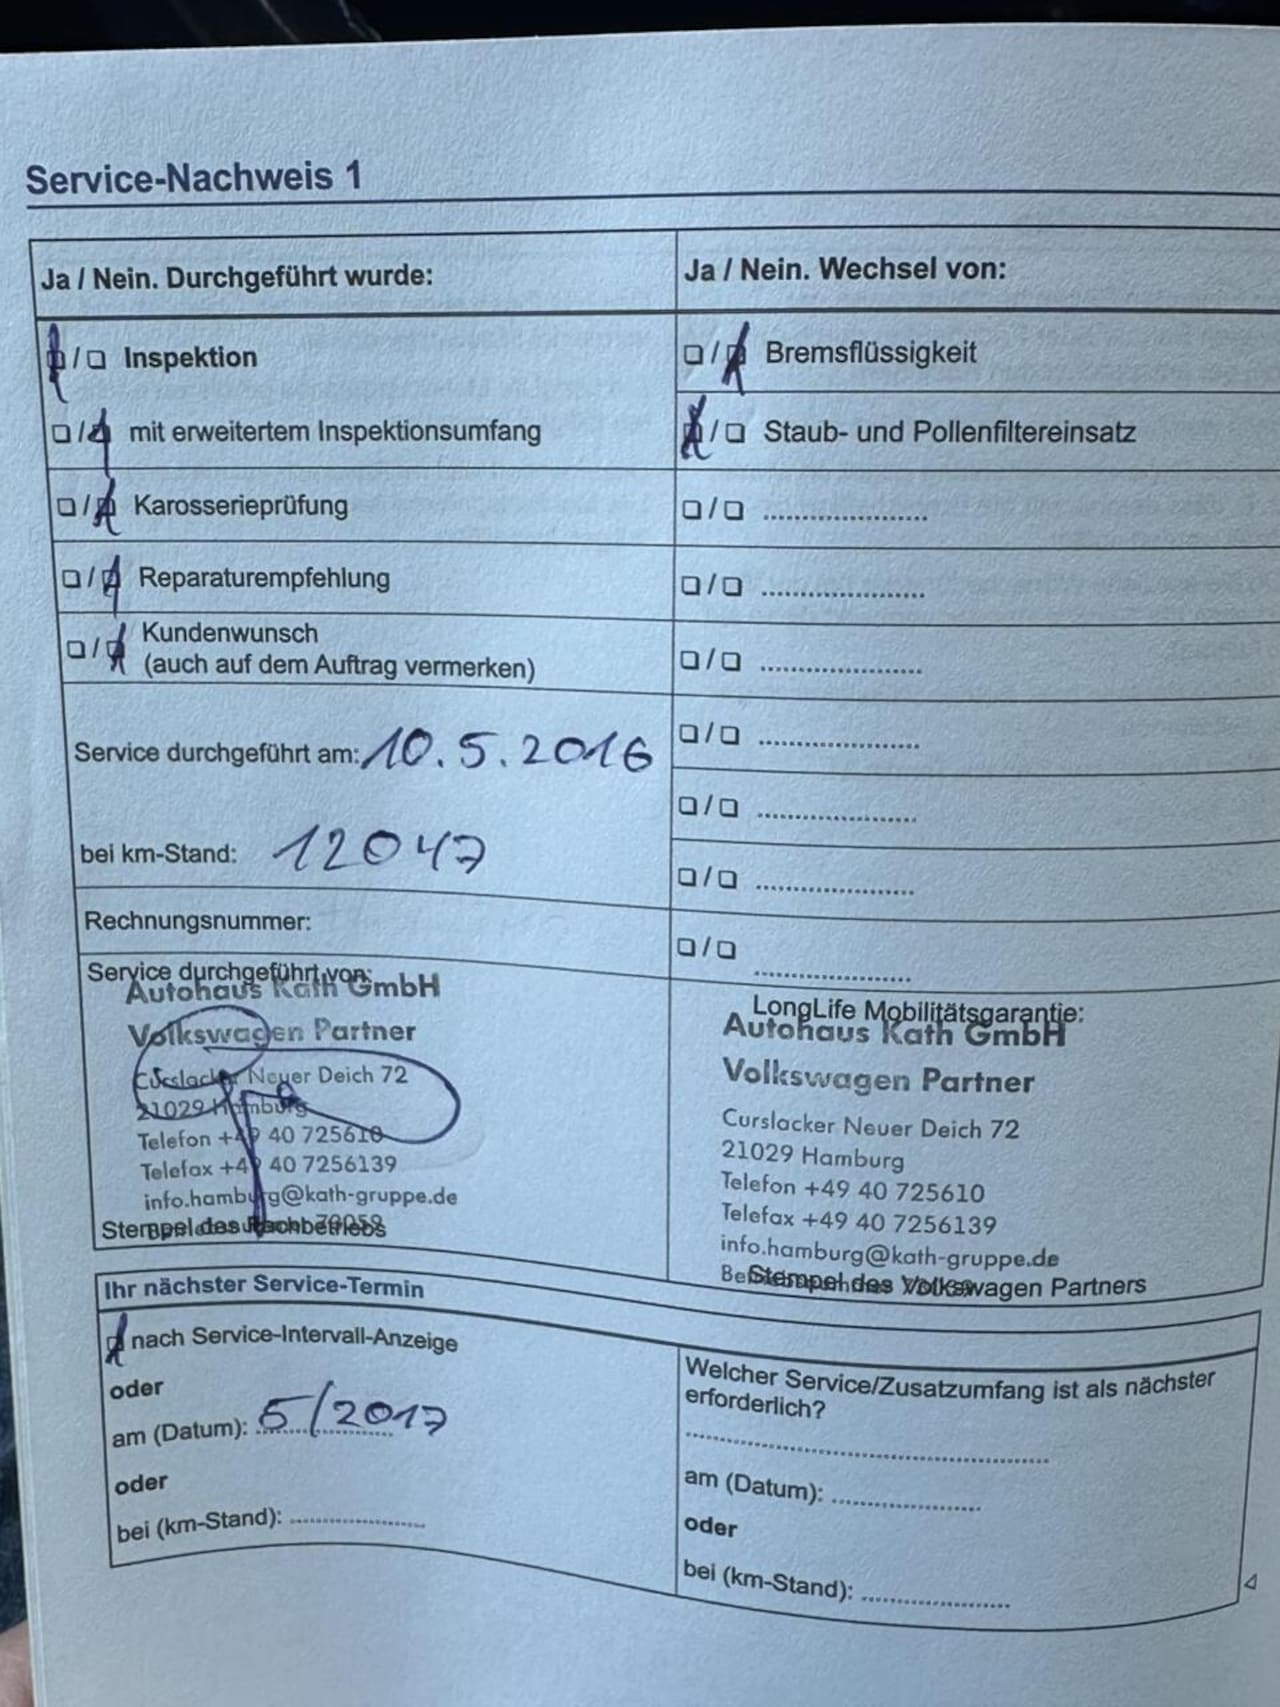 Service-Nachweis 1
Ja / Nein. Durchgeführt wurde:
☒/☐ Inspektion
☐/☒ mit erweitertem Inspektionsumfang
☐/☒ Karosserieprüfung
☐/☒ Reparaturempfehlung
☐/☒ Kundenwunsch
(auch auf dem Auftrag vermerken)
Service durchgeführt am: 10.5.2016
bei km-Stand: 12047
Rechnungsnummer:
Service durchgeführt von:
Autohaus Kath GmbH
Volkswagen Partner
Curslacker Neuer Deich 72
21029 Hamburg
Telefon +49 40 725610
Telefax +49 40 7256139
info.hamburg@kath-gruppe.de
Stempel des Fachbetriebs
Ja / Nein. Wechsel von:
☐/☒ Bremsflüssigkeit
☒/☐ Staub- und Pollenfiltereinsatz
☐/☐ ........................
☐/☐ ........................
☐/☐ ........................
☐/☐ ........................
☐/☐ ........................
☐/☐ ........................
☐/☐ ........................
LongLife Mobilitätsgarantie:
Autohaus Kath GmbH
Volkswagen Partner
Curslacker Neuer Deich 72
21029 Hamburg
Telefon +49 40 725610
Telefax +49 40 7256139
info.hamburg@kath-gruppe.de
Stempel des Volkswagen Partners
Ihr nächster Service-Termin
☒ nach Service-Intervall-Anzeige
oder
am (Datum): 5/2017
oder
bei (km-Stand): ........................
Welcher Service/Zusatzumfang ist als nächster
erforderlich?
................................................
am (Datum): ........................
oder
bei (km-Stand): ........................